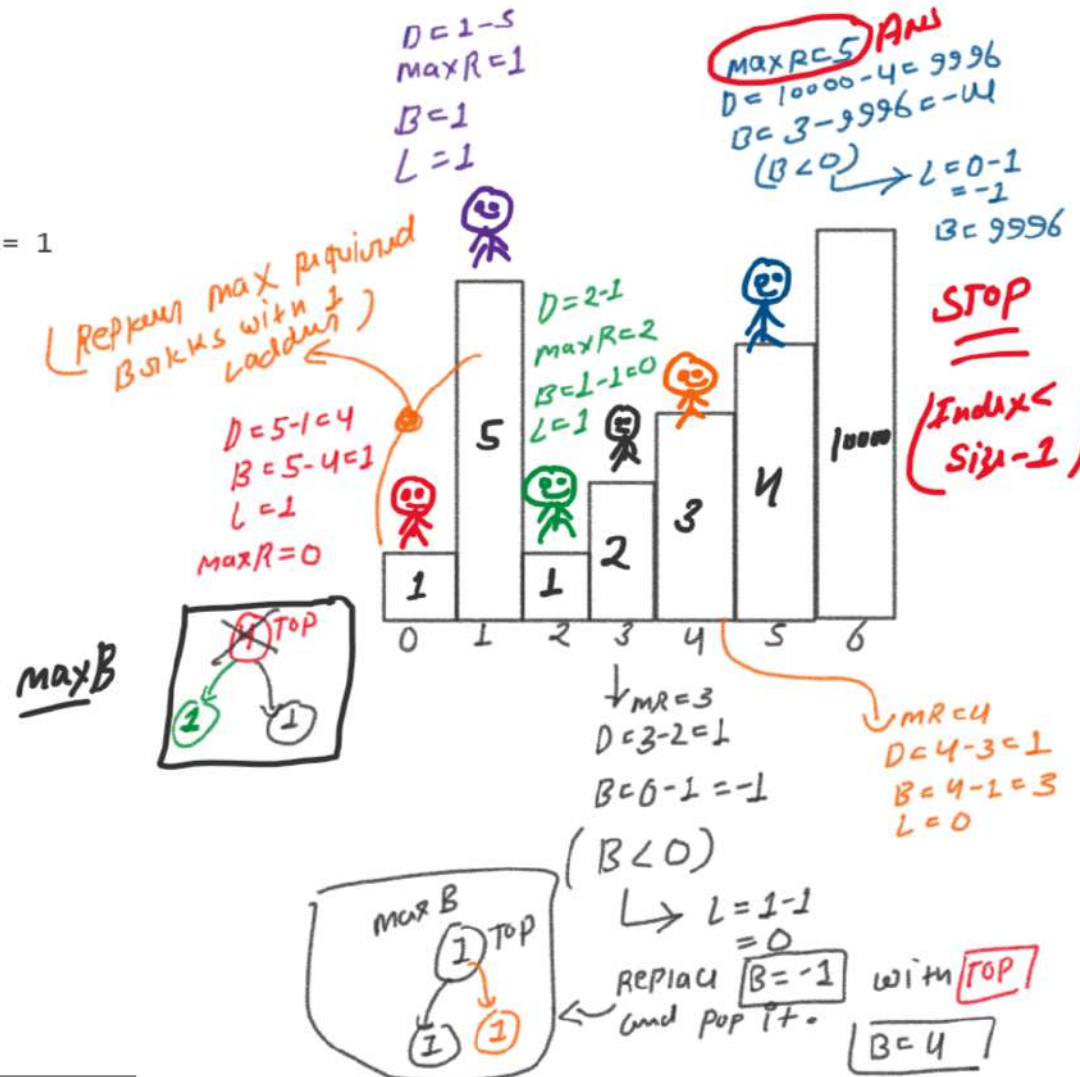 D = 1-5
maxR = 1
B = 1
L = 1
maxR = 5 Ans
D = 10000-4 = 9996
B = 3-9996 = -ve
(B<0)
L = 0-1
= -1
B = 9996
= 1
max required
with 1
D = 2-1
maxR = 2
B = 1-1=0
L = 1
STOP
(Index<
Size-1)
D = 5-1=4
B = 5-4=1
L = 1
maxR = 0
1
5
1
2
3
4
10000
0 1 2 3 4 5 6
maxB
4 TOP
1 1
mR = 3
D = 3-2 = 1
B = 0-1 = -1
(B<0)
L = 1-1
= 0
mR = 4
D = 4-3 = 1
B = 4-1 = 3
L = 0
max B
1 TOP
1 1
Replace B = -1 with TOP
and pop it.
B = 4